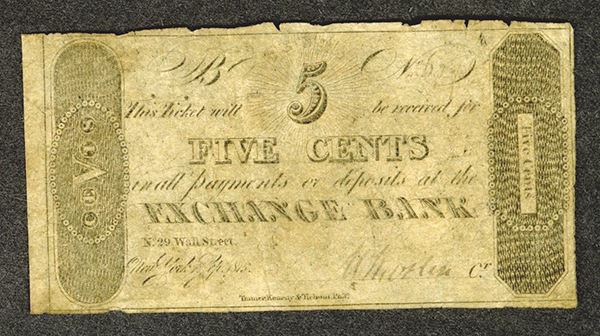 B 5 No.
This Ticket will be received for
FIVE CENTS
in all payments or deposits at the
EXCHANGE BANK
N. 29 Wall Street.
New York 1815
Cr.
CEVTS
Five Cents